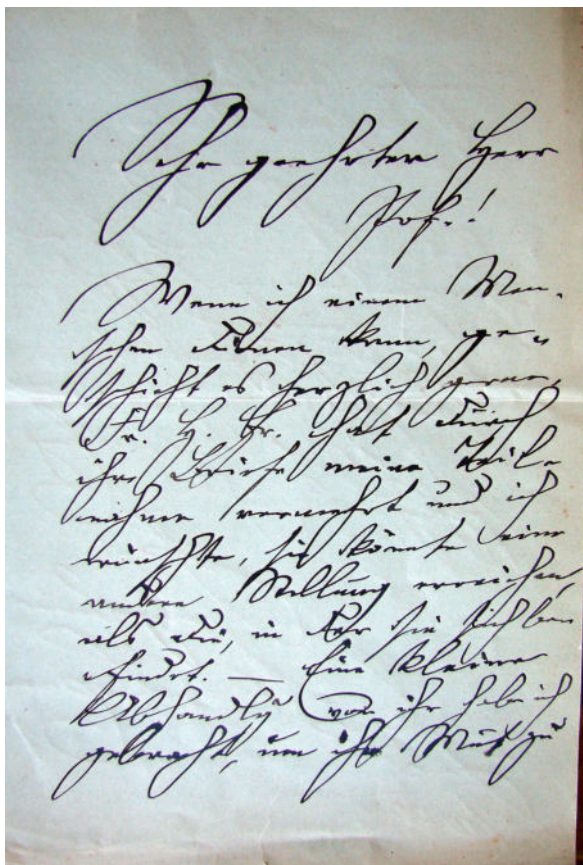 Sehr geehrter Herr
Prof.!
Wenn ich einem Men-
schen dienen kann, ge-
schieht es herzlich gerne.
Fr. H. Hr. hat durch
ihre Briefe meine Teil-
nahme vermehrt und ich
wünschte, sie könnte eine
andere Stellung erreichen,
als die, in der sie sich be-
findet. — Eine kleine
Abhandlg von ihr habe ich
gebracht, um ihr Mut zu